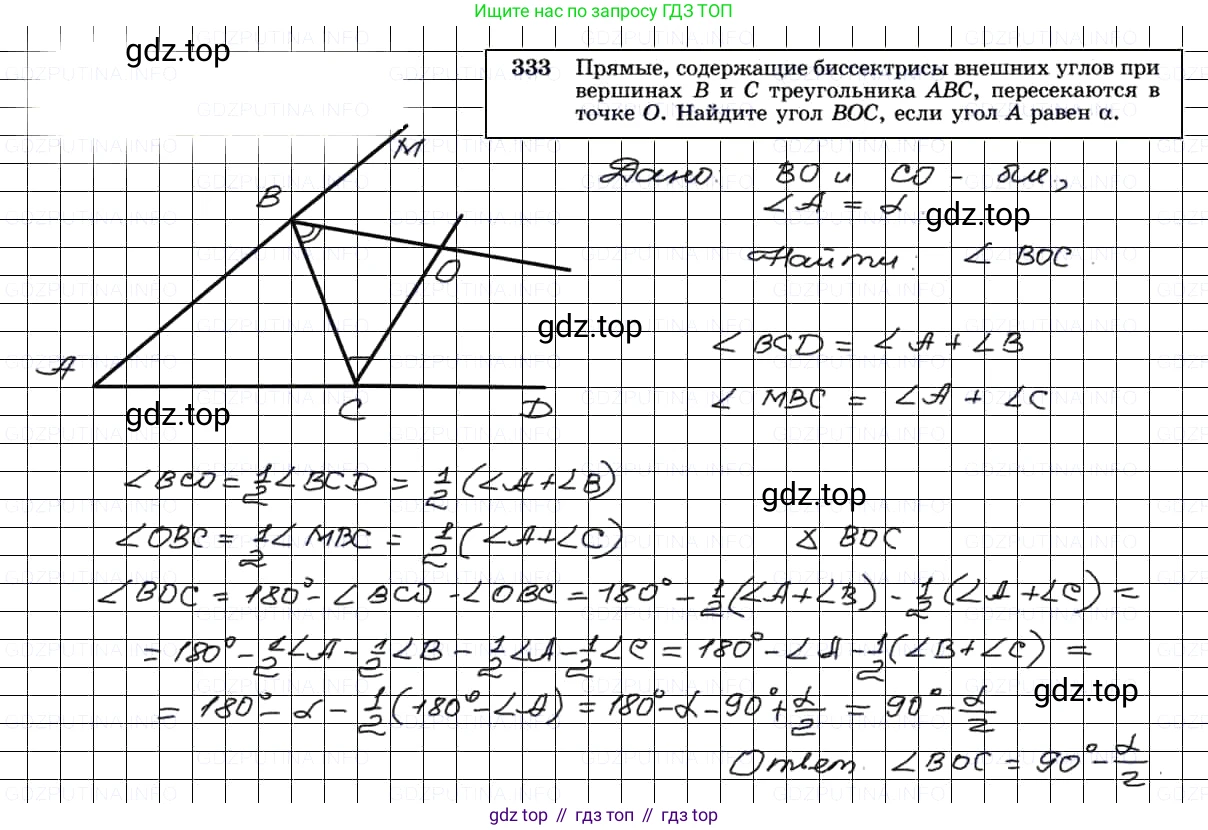 Ищите нас по запросу ГДЗ ТОП
gdz.top
333 Прямые, содержащие биссектрисы внешних углов при
вершинах B и C треугольника ABC, пересекаются в
точке O. Найдите угол BOC, если угол A равен α.
M
B
O
A
C
D
Дано: BO и CO – бис.,
∠A = α
gdz.top
Найти: ∠BOC.
gdz.top
∠BCD = ∠A + ∠B
∠MBC = ∠A + ∠C
gdz.top
∠BCO = 1/2 ∠BCD = 1/2 (∠A + ∠B)
gdz.top
∠OBC = 1/2 ∠MBC = 1/2 (∠A + ∠C)
△ BOC
∠BOC = 180° - ∠BCO - ∠OBC = 180° - 1/2 (∠A + ∠B) - 1/2 (∠A + ∠C) =
= 180° - 1/2 ∠A - 1/2 ∠B - 1/2 ∠A - 1/2 ∠C = 180° - ∠A - 1/2 (∠B + ∠C) =
gdz.top
= 180° - α - 1/2 (180° - ∠A) = 180° - α - 90° + α/2 = 90° - α/2
Ответ. ∠BOC = 90° - α/2.
gdz top // гдз топ // гдз top
GDZPUTINA.INFO